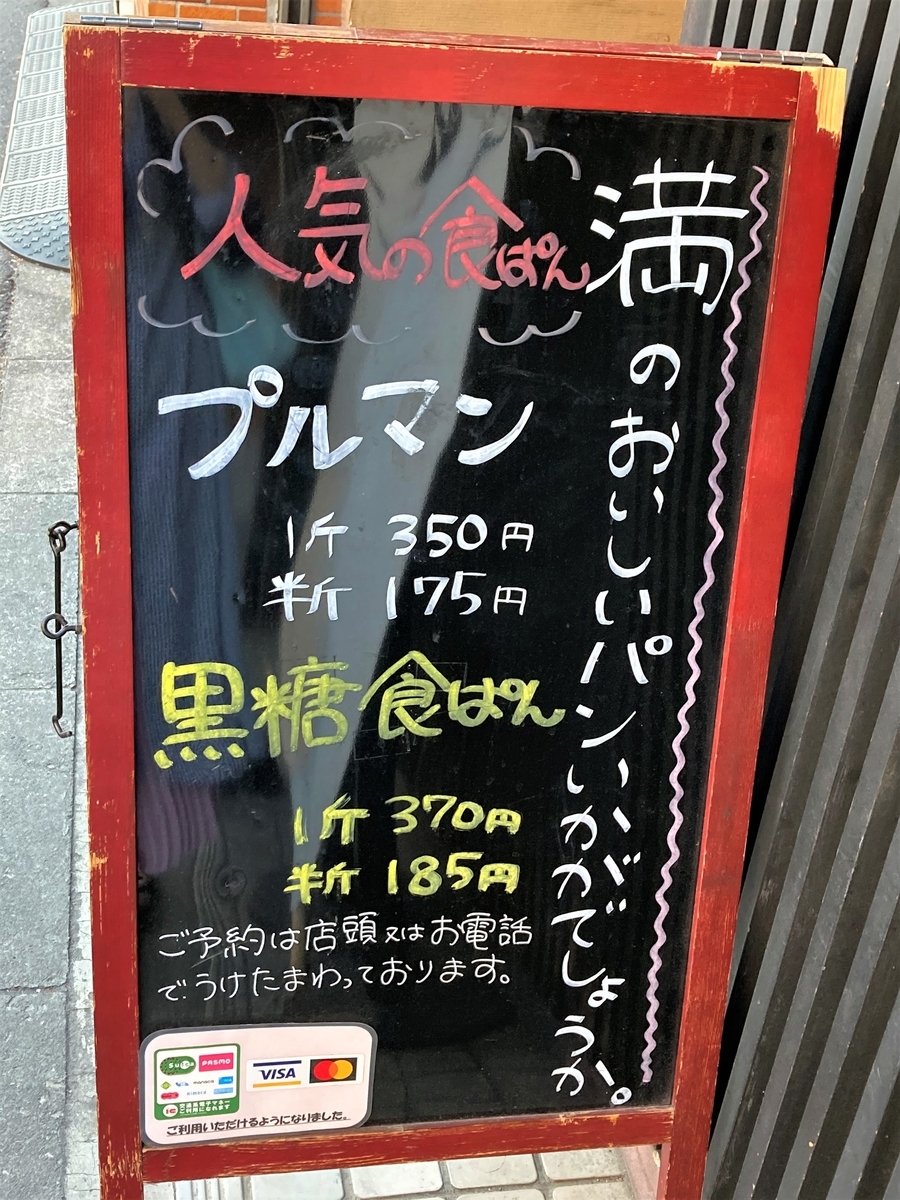 満のおいしいパンいかがでしょうか。
人気の食ぱん
プルマン
1斤 350円
半斤 175円
黒糖食ぱん
1斤 370円
半斤 185円
ご予約は店頭又はお電話
でうけたまわっております。
Suica PASMO
VISA mastercard
manaca
交通系電子マネー
ご利用になれます
ご利用いただけるようになりました。